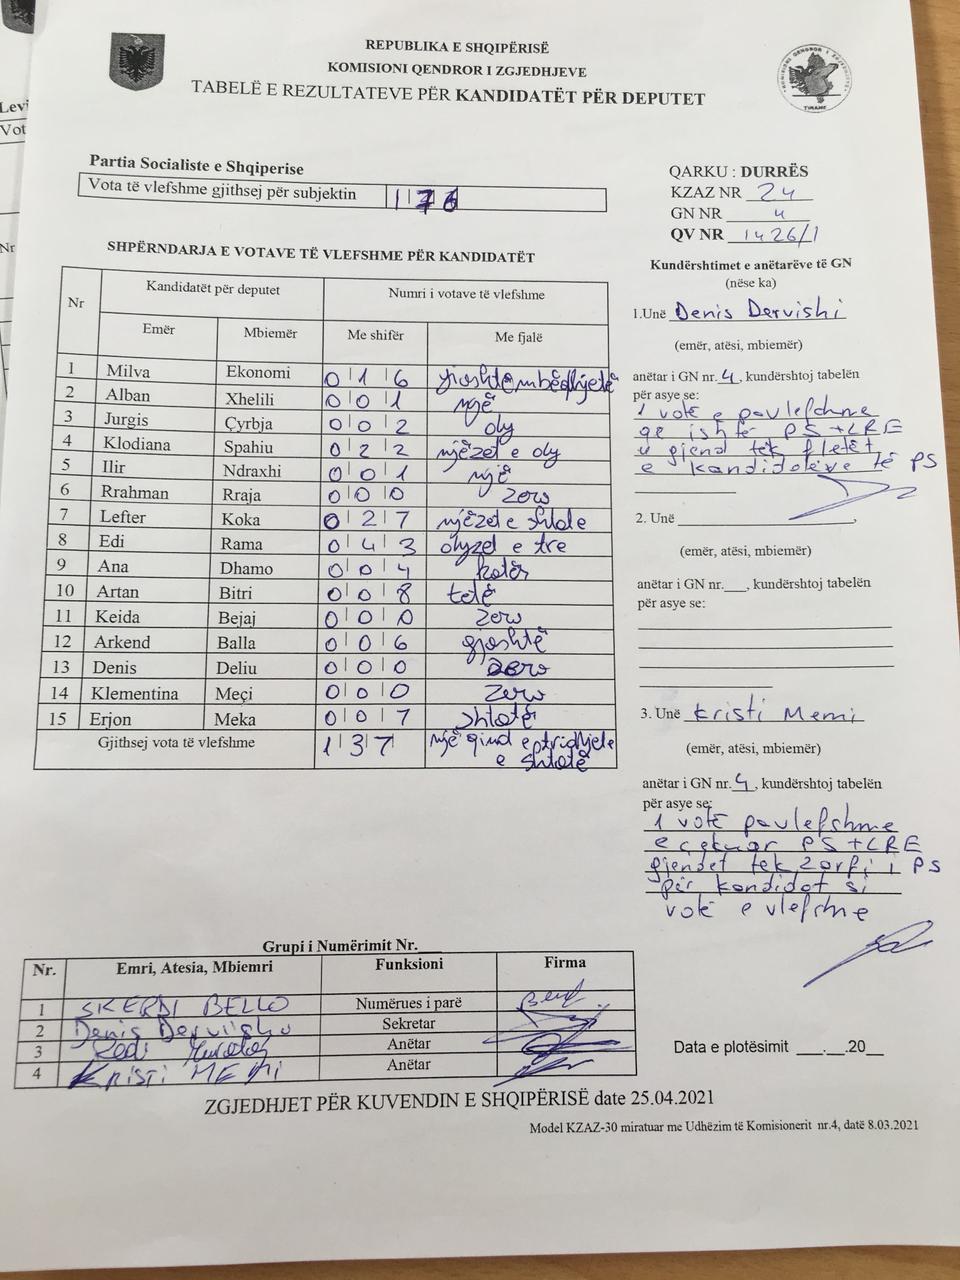 REPUBLIKA E SHQIPËRISË
KOMISIONI QENDROR I ZGJEDHJEVE
TABELË E REZULTATEVE PËR KANDIDATËT PËR DEPUTET
Levi
Vot
Nr
Partia Socialiste e Shqiperise
Vota të vlefshme gjithsej për subjektin
QARKU : DURRËS
KZAZ NR 24
GN NR 4
QV NR 1426/1
SHPËRNDARJA E VOTAVE TË VLEFSHME PËR KANDIDATËT
Nr Kandidatët për deputet Numri i votave të vlefshme
Emër Mbiemër Me shifër Me fjalë
1 Milva Ekonomi 0 1 6 gjashtëmbëdhjetë
2 Alban Xhelili 0 0 1 një
3 Jurgis Çyrbja 0 0 2 dy
4 Klodiana Spahiu 0 2 2 njëzet e dy
5 Ilir Ndraxhi 0 0 1 një
6 Rrahman Rraja 0 0 0 zero
7 Lefter Koka 0 2 7 njëzet e shtate
8 Edi Rama 0 4 3 dyzet e tre
9 Ana Dhamo 0 0 4 katër
10 Artan Bitri 0 0 8 tetë
11 Keida Bejaj 0 0 0 zero
12 Arkend Balla 0 0 6 gjashtë
13 Denis Deliu 0 0 0 zero
14 Klementina Meçi 0 0 0 zero
15 Erjon Meka 0 0 7 shtatë
Gjithsej vota të vlefshme 1 3 7 një qind e tridhjete
e shtatë
Kundërshtimet e anëtarëve të GN
(nëse ka)
1.Unë Denis Dervishi
(emër, atësi, mbiemër)
anëtar i GN nr. 4, kundërshtoj tabelën
për asye se:
1 votë e pavlefshme
qe ishte PS+LRE
u gjend tek fletët
e kandidatëve të PS
2. Unë
(emër, atësi, mbiemër)
anëtar i GN nr.___, kundërshtoj tabelën
për asye se:
3. Unë Kristi Memi
(emër, atësi, mbiemër)
anëtar i GN nr. 4, kundërshtoj tabelën
për asye se:
1 votë pavlefshme
e çekuar PS+LRE
gjendet tek zarfi i PS
për kandidat si
votë e vlefshme
Grupi i Numërimit Nr.
Nr. Emri, Atesia, Mbiemri Funksioni Firma
1 SKERDI BELLO Numërues i parë
2 Denis Dervishi Sekretar
3 Redi Anëtar
4 KRISTI MEMI Anëtar
Data e plotësimit ___.___.20__
ZGJEDHJET PËR KUVENDIN E SHQIPËRISË date 25.04.2021
Model KZAZ-30 miratuar me Udhëzim të Komisionerit nr.4, datë 8.03.2021